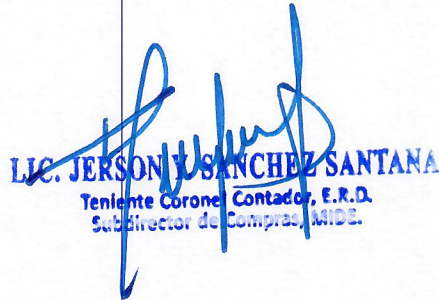 LIC. JERSON Y. SANCHEZ SANTANA
Teniente Coronel Contador, E.R.D.
Subdirector de Compras, MIDE.